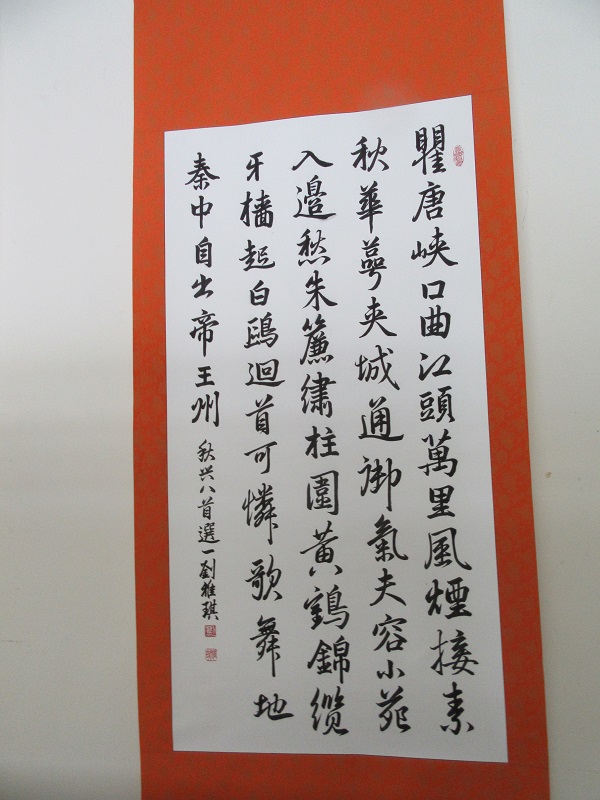 瞿唐峽口曲江頭萬里風煙接素
秋華萼夹城通御氣夫容小苑
入邊愁朱簾繡柱圍黃鶴錦纜
牙檣起白鷗迴首可憐歌舞地
秦中自古帝王州
秋兴八首選一劉維琪